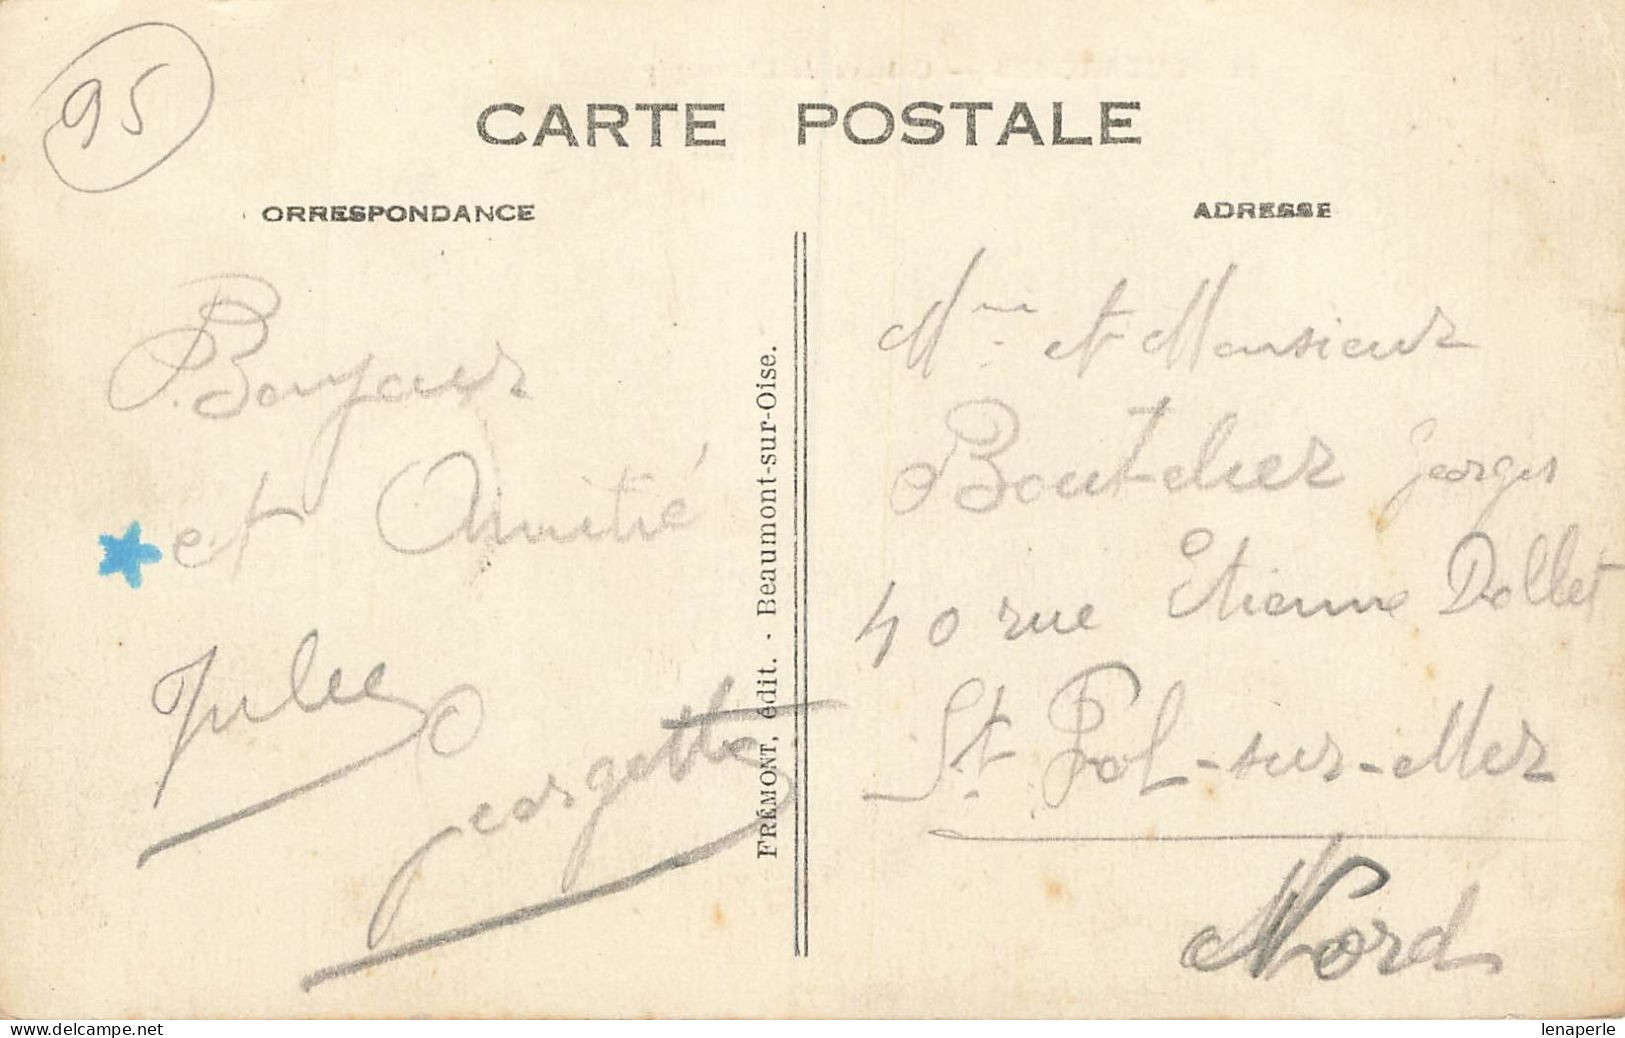 95
CARTE POSTALE
ORRESPONDANCE
ADRESSE
Bonjour
et Amitié
Jules
Georgette
FRÉMONT, édit. - Beaumont-sur-Oise.
Mme et Monsieur
Boutelier Georges
40 rue Etienne Dollet
St Pol-sur-Mer
Nord
www.delcampe.net
lenaperle